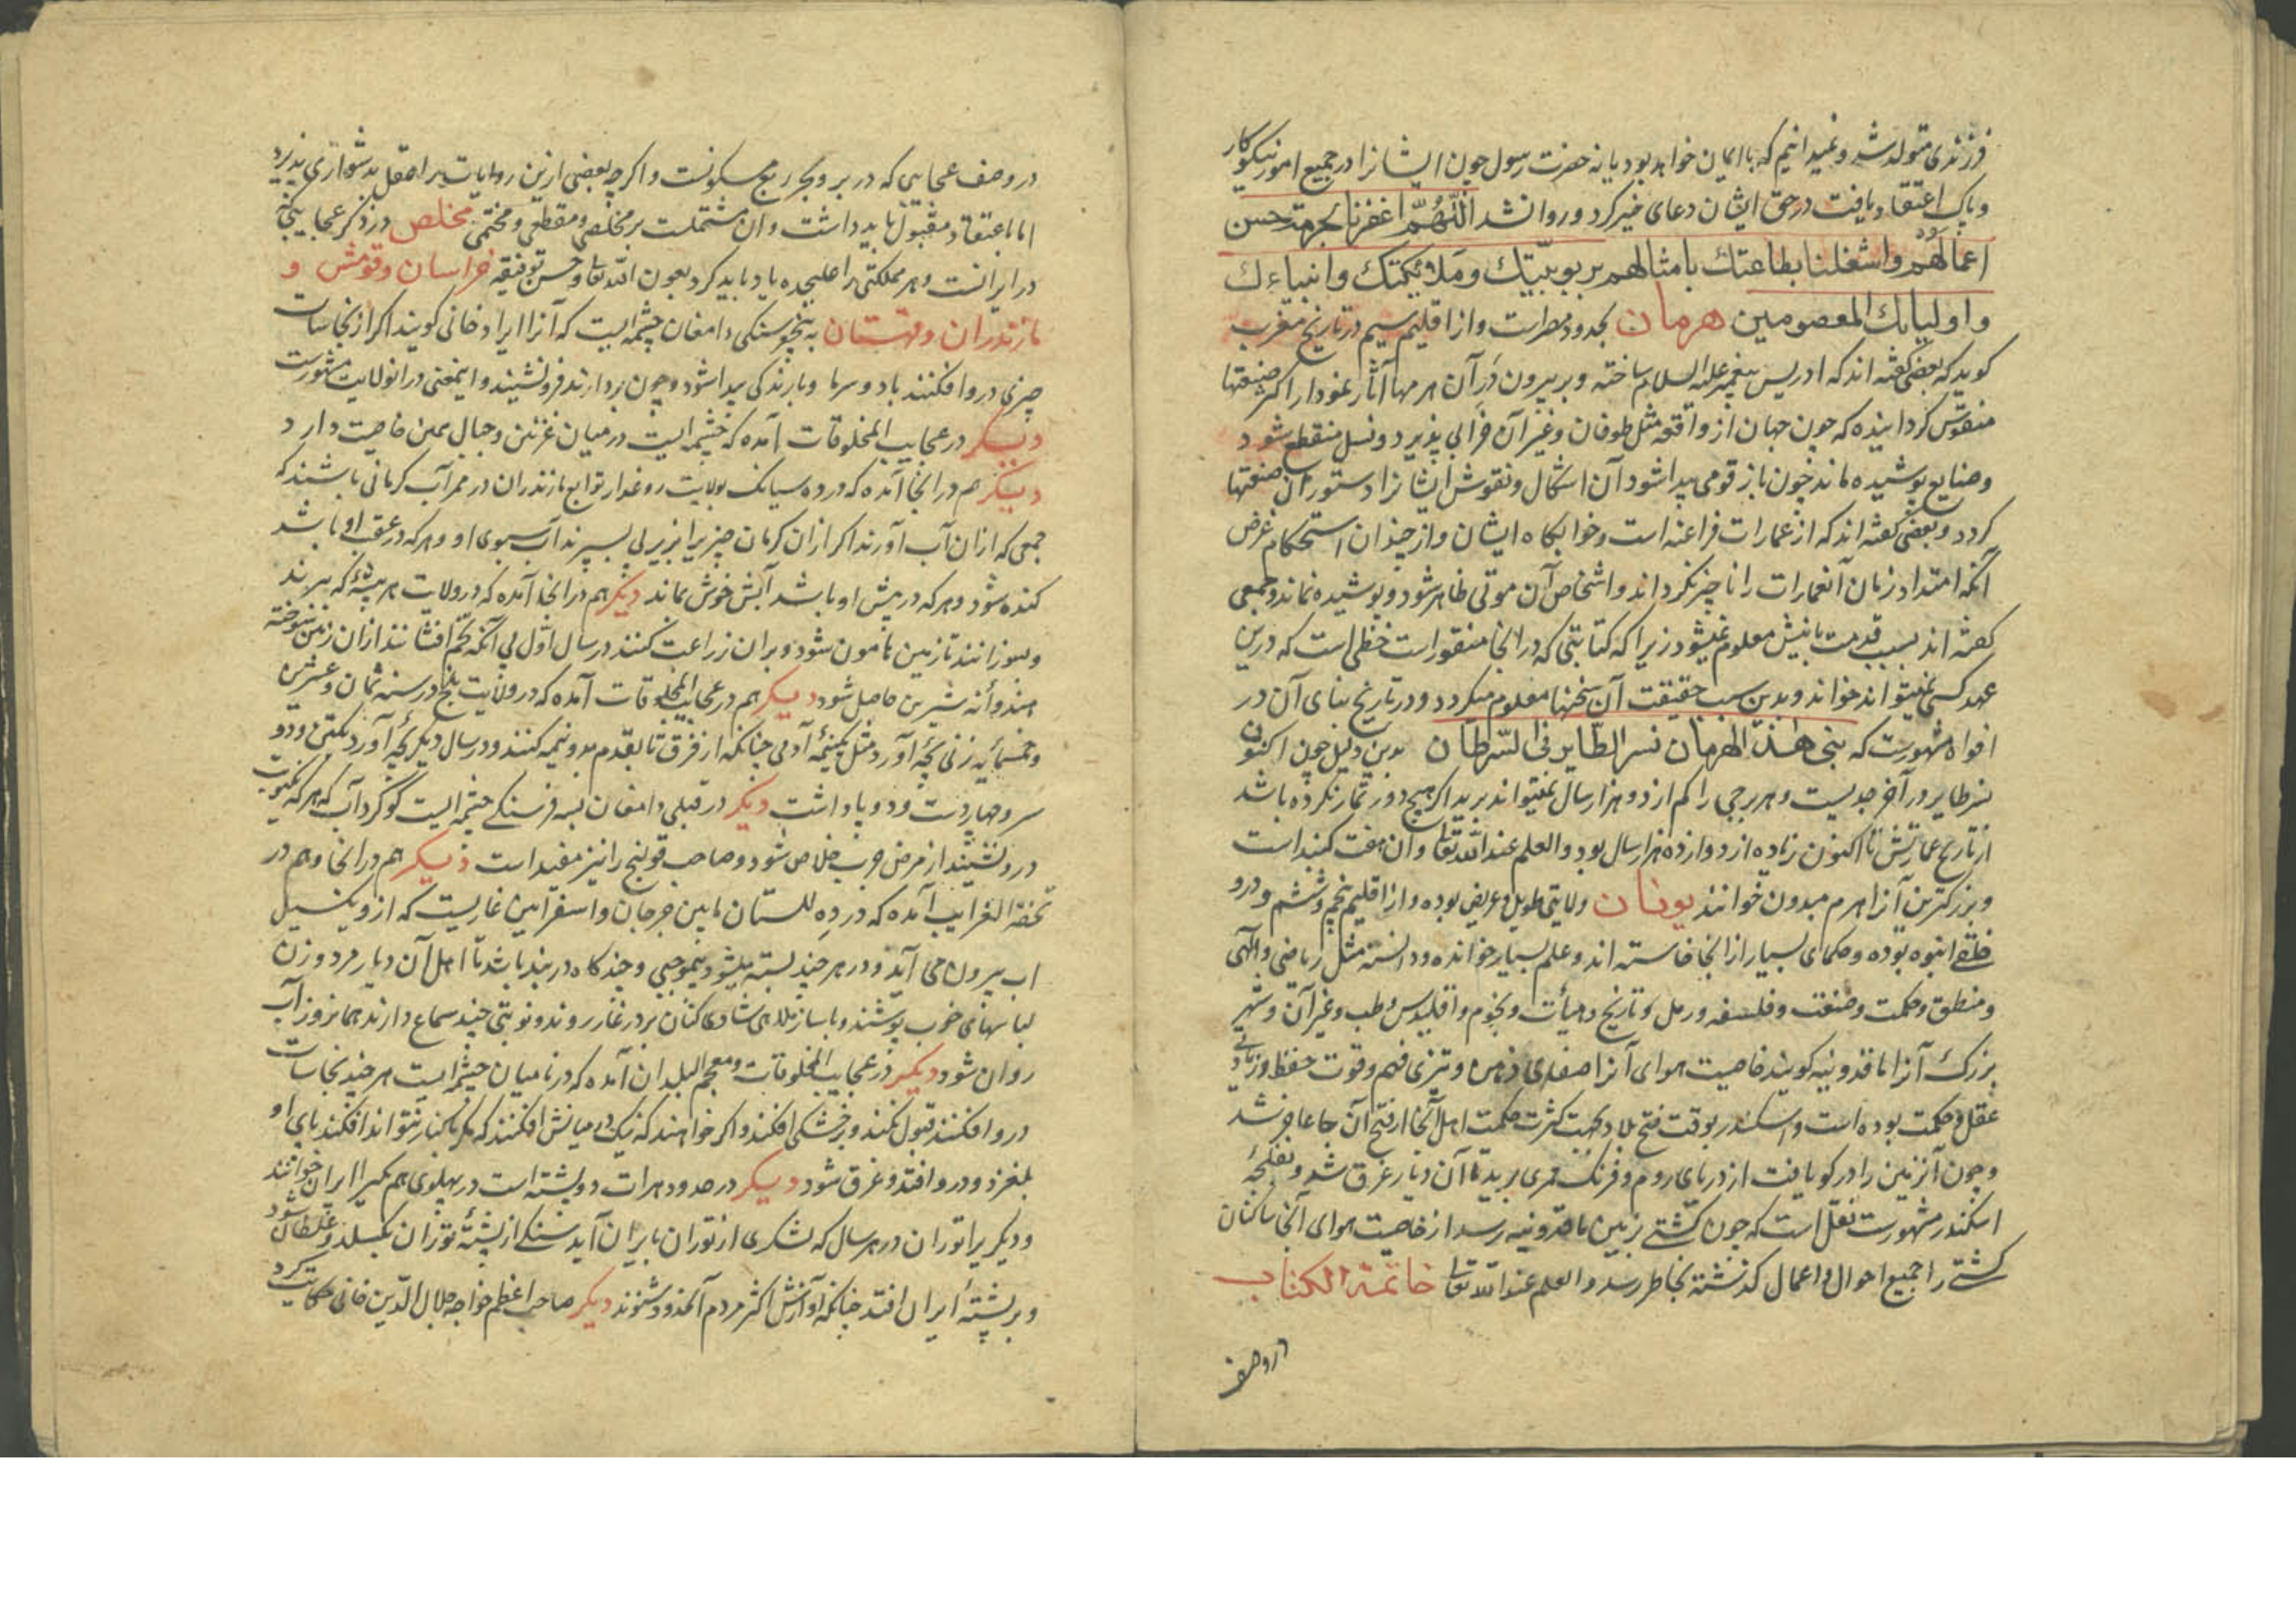 فرزندی متولد شد و نمیدانیم که با ایمان خواهد بود یا نه حضرت رسول چون ایشانرا در جمیع امور نیکوکار
و پاک اعتقاد یافت در حق ایشان دعای خیر کرد و روانشد اللّهُمَّ اغفرنا بحرمة حسن
اعمالَهُم واشغلنا بطاعتك بامثالهم بربوبیّتك وملائیکتك وانبیاءك
واولیایك المعصومین هرمان بحدود مصر است و از اقلیم سیم در تاریخ مغرب
کوید که بعضی کفته اند که ادریس پیغمبر علیه السلام ساخته و بر بیرون دَرِ آن هرمها آثار نمودار اکثر صنعتها
منقوش کردانیده که چون جهان از واقعه مثل طوفان و غیر آن خرابی پذیرد و نسل منقطع شود
و صنایع پوشیده ماند چون باز قومی پیدا شود آن اشکال و نقوش ایشانرا دستور آن صنعتها
کردد و بعضی کفته اند که از عمارات فراعنه است و خوابکاه ایشان و از چندان استحکام غرض
آنکه امتداد زمان آنعمارات را ناچیز نکرداند و اشخاص آن موتی ظاهر شود و پوشیده نماند و جمعی
کفته اند بسبب قدمت بانیش معلوم نمیشود زیرا که کتابتی که در انجا منقور است خطی است که درین
عهد کسی نمیتواند خواند و بدین سبب حقیقت آن سخنها معلوم میکردد و در تاریخ بنای آن در
افواه مشهورست که بنی هذا الهرمان نسر الطّایر فی السّرطان بدین دلیل چون اکنون
نسر طایر در آخر جدیست و هر برجی را کم از دو هزار سال نمیتواند برید اکر هیچ دور تمار نکرده باشد
از تاریخ عمارتش تا اکنون زیاده از دوازده هزار سال بود والعلم عند الله تعالی و آن هفت کنبد است
و بزرکترین آنرا هرم میدون خوانند یونان ولایتی طویل و عریض بوده و از اقلیم پنجم و ششم و درو
خلقی انبوه بوده و حکمای بسیار از انجا خاسته اند و علم بسیار خوانده و دانسته مثل ریاضی و الهی
و منطق و حکمت و صنعت و فلسفه و رمل و تاریخ و هیأت و نجوم و اقلیدس و طب و غیر آن و شهر
بزرک آنرا ماقدونیه کویند خاصیت هوای آنرا صفای ذهن و تیزی فهم و قوت حفظ و زیادتی
عقل و حکمت بوده است و اسکندر بوقت فتح بلاد بجهت کثرت حکمت اهل آنجا از فتح آن جا عاجز شد
و چون آنزمین را در کو یافت از دریای روم و فرنک ممری برید تا آن دیار غرق شد و
اسکندر مشهورست نقل است که چون کشتی بزمین ماقدونیه رسد از خاصیت هوای آنجا ساکنان
کشتی را جمیع احوال و اعمال کذشته بخاطر رسد والعلم عند الله تعالی خاتمة الکتاب
در وصف عجایبی که در بر و بحر ربع مسکونست و اکرچه بعضی ازین روایات را عقل بدشواری پذیرد
اما باعتقاد مقبول باید داشت و آن مشتملست بر مخلصی و مقطعی و مختمی مخلص در ذکر عجایب کی
در ایرانست و هر مملکتی را علیحده یاد باید کرد بعون الله تعالی و حسن توفیقه خراسان و قومش و
مازندران و قهستان به پنجفرسنکی دامغان چشمه ایست که آنرا ابراد خانی کویند اکر از نجاسات
چیزی درو افکنند باد و سرما و بارندکی پیدا شود و چون بردارند فرو نشیند و اینمعنی در انولایت مشهورست
دیکر در عجایب المخلوقات آمده که چشمه ایست در میان غزنین و جبال همین خاصیت دارد
دیکر هم در انجا آمده که در ده سیانک بولایت روغد از توابع مازندران در ممر آب کرمانی باشند که
جمعی که ازان آب آورند اکر ازان کرمان چیزیرا زیر پی بسپرند آب سبوی او و هر که در عقب او باشد
کنده شود و هر که در پیش او باشد آبش خوش بماند دیکر هم در انجا آمده که در ولایت هر بیشه که ببرند
و بسوزانند تا زمین هامون شود و بران زراعت کنند در سال اوّل بی آنکه تخم افشانند ازان زمین سوخته
هندوانه شیرین حاصل شود دیکر هم در عجایب المخلوقات آمده که در ولایت بلخ در سنه ثمان و عشرین
و خمسمایه زنی بچّه آورد مثل نیمه آدمی چنانکه از فرق تا بقدم بدو نیمه کنند و در سال دیکر بچّه آورد یکتن و دو
سر و چهار دست و دو پا داشت دیکر در قبلی دامغان بسه فرسنکی چشمه ایست کوکرد آب که هر که
درو نشیند از مرض جرب خلاص شود و صاحب قولنج را نیز مفید است دیکر هم در انجا و هم در
تحفة الغرایب آمده که در ده للستان مابین جرجان و اسفراین غاریست که ازو یکسیل
اب بیرون می آید و در هر چند بسته میشود بیموجبی و چند کاه در بند باشد تا اهل آن دیار مرد و زن
لباسهای خوب پوشند و با ساز ملاهی شادی کنان بر در غار روند و نوبتی چند سماع دارند همانروز آب
روان شود دیکر در عجایب المخلوقات و معجم البلدان آمده که در بامیان چشمه ایست هر چند نجاسات
درو افکنند قبول نکند و بر خشکی افکند و اکر خواهند که نیک در میانش افکنند که بکنار نتواند افکند پای او
بلغزد و درو افتد و غرق شود دیکر در حدود هرات دو پشته است در پهلوی هم یکیرا ایران خوانند
و دیکریرا توران در هر سال که لشکری از توران بایران آید سنکی از پشته توران بکسلد و غلطان شود
و بر پشته ایران افتد چنانکه آوازش اکثر مردم آنحدود شنوند دیکر صاحب اعظم خواجه جلال الدّین خافی حکایت کرد